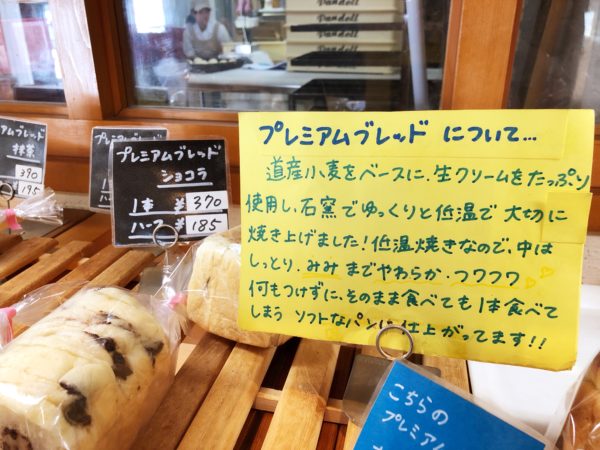 Pandell
プレミアムブレッド
抹茶
390
195
プレミアムブレッド
ショコラ
1本 ¥370
ハーフ ¥185
プレミアムブレッド について…
道産小麦をベースに、生クリームをたっぷり
使用し、石窯でゆっくりと低温で大切に
焼き上げました!低温焼きなので、中は
しっとり、みみまでやわらか・フワフワ
何もつけずに、そのまま食べても1本食べて
しまう ソフトなパンに仕上がってます!!
こちらの
プレミアム